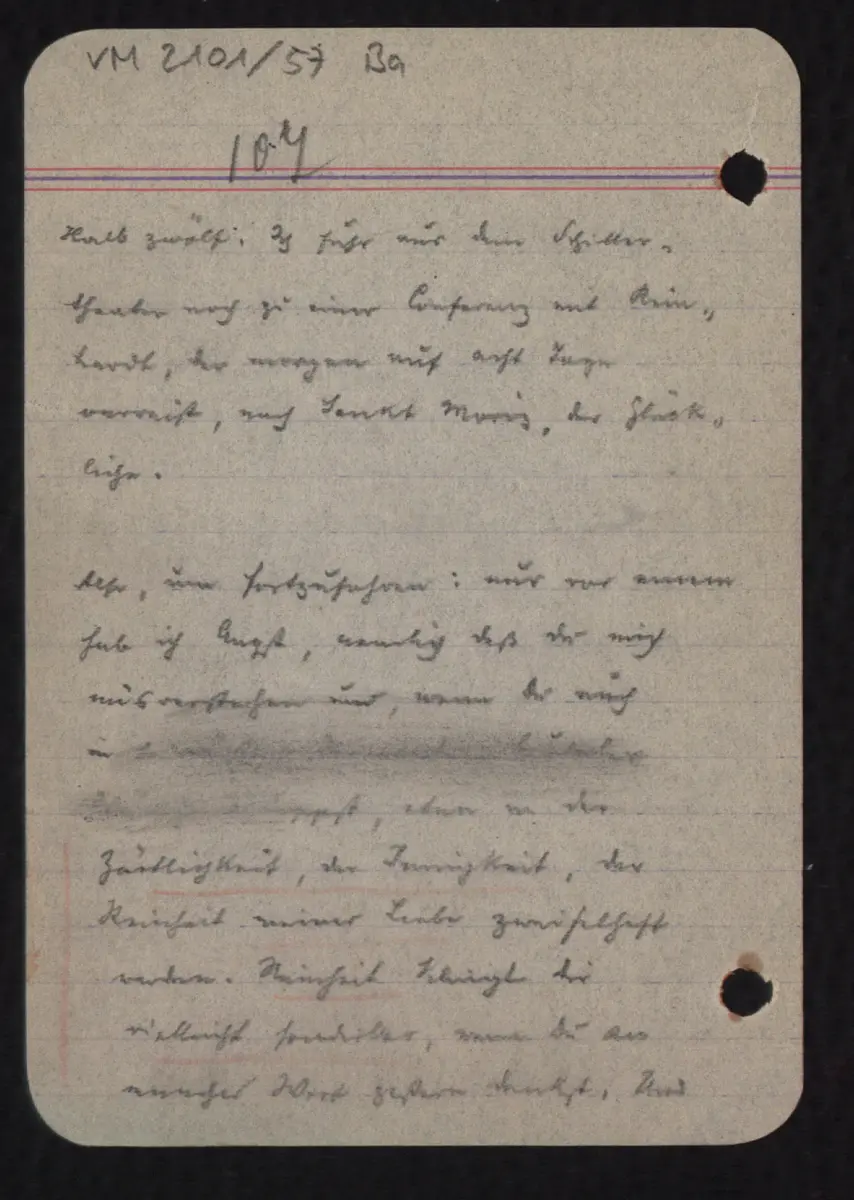 VM 2101/57 Ba
107
Halb zwölf. Ich fuhr aus dem Schiller-
theater noch zu einer Conferenz mit Rein-
hardt, der morgen auf acht Tage
verreist, nach Sankt Moriz, der Glück-
liche.
Also, um fortzufahren: nur vor einem
hab ich Angst, nemlich daß du mich
misverstehen und, wenn Du auch
in
, etwa an der
Zärtlichkeit, der Innigkeit, der
Reinheit meiner Liebe zweifelhaft
werden. Reinheit klingt dir
vielleicht sonderbar, wenn Du an
manches Wort gestern denkst. Und